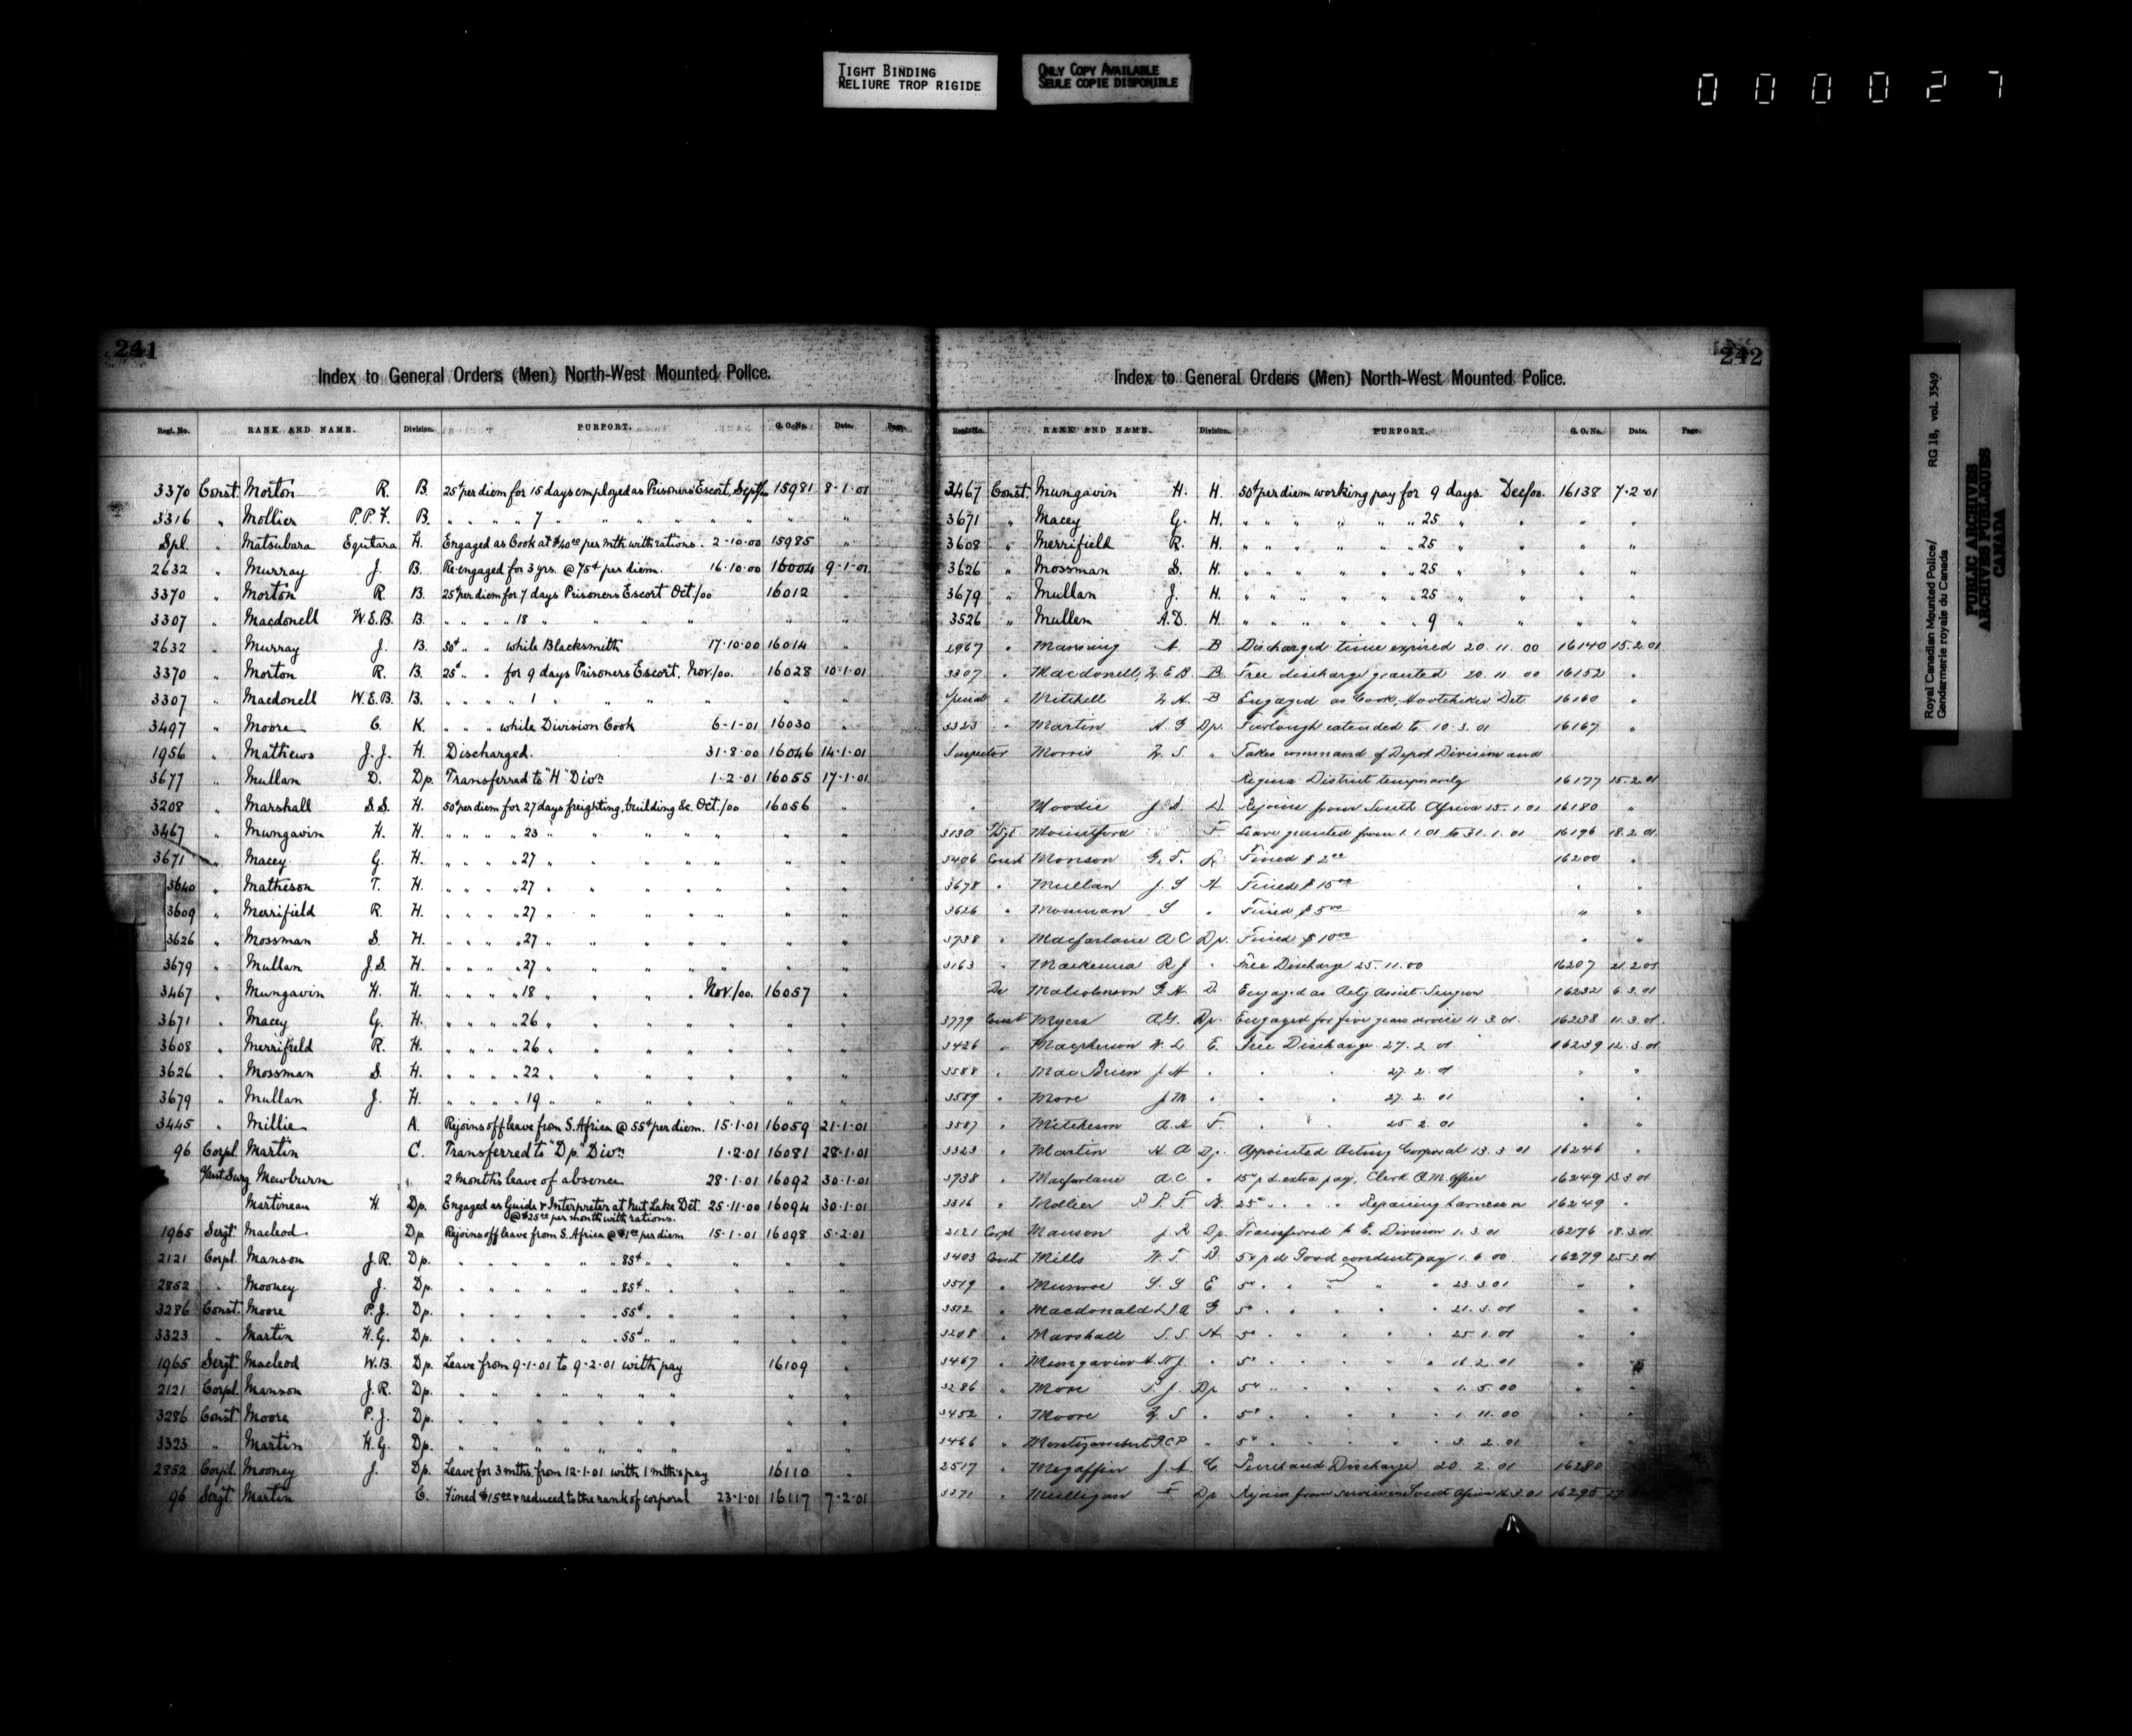 TIGHT BINDING
RELIURE TROP RIGIDE
ONLY COPY AVAILABLE
SEULE COPIE DISPONIBLE
000027
241
Index to General Orders (Men) North-West Mounted Police.
Regl. No. RANK AND NAME. Division. PURPORT. G. O. No. Date. Page.
3370 Const. Morton R. B. 25¢ per diem for 15 days employed as Prisoners Escort, Sept/00 15981 8-1-01
3316 " Mollier P.P.F. B. " " " " 7 " " " " " " " "
Spl. " Matsubara Equitara H. Engaged as Cook at $40.00 per mth with rations. 2-10-00 15985 "
2632 " Murray J. B. Re-engaged for 3 yrs. @ 75¢ per diem. 16-10-00 16004 9-1-01
3370 " Morton R. B. 25¢ per diem for 7 days Prisoners Escort Oct/00 16012 "
3307 " Macdonell W.E.B. B. " " " " 18 " " " " " "
2632 " Murray J. B. 50¢ " " while Blacksmith 17-10-00 16014 "
3370 " Morton R. B. 25¢ " " for 9 days Prisoners Escort, Nov/00. 16028 10-1-01
3307 " Macdonell W.E.B. B. " " " " 1 " " " " " "
3497 " Moore C. K. " " " while Division Cook 6-1-01 16030 "
1956 " Mathews J.J. H. Discharged. 31-8-00 16046 14-1-01
3677 " Mullan D. Dp. Transferred to "H" Divn. 1-2-01 16055 17-1-01
3208 " Marshall S.S. H. 50¢ per diem for 27 days freighting, building &c. Oct./00 16056 "
3467 " Mungavin H. H. " " " " 23 " " " " " " "
3671 " Macey G. H. " " " " 27 " " " " " " "
3640 " Matheson T. H. " " " " 27 " " " " " " "
3609 " Merrifield R. H. " " " " 27 " " " " " " "
3626 " Mossman S. H. " " " " 27 " " " " " " "
3679 " Mullan J.S. H. " " " " 27 " " " " " " "
3467 " Mungavin H. H. " " " " 18 " " " " Nov./00. 16057 "
3671 " Macey G. H. " " " " 26 " " " " " " "
3608 " Merrifield R. H. " " " " 26 " " " " " " "
3626 " Mossman S. H. " " " " 22 " " " " " " "
3679 " Mullan J. H. " " " " 19 " " " " " " "
3445 " Millie A. Rejoins off leave from S. Africa @ 55¢ per diem. 15-1-01 16059 21-1-01
96 Corpl. Martin C. Transferred to "Dp." Divn. 1-2-01 16081 28-1-01
Asst Surg Mewburn 2 months leave of absence 28-1-01 16092 30-1-01
Martineau H Dp. Engaged as Guide & Interpreter at Nut Lake Det. 25-11-00 16094 30-1-01
@ $25.00 per month with rations.
1965 Sergt. Macleod Dp Rejoins off leave from S. Africa @ $1.00 per diem 15-1-01 16098 5-2-01
2121 Corpl. Manson J.R. Dp. " " " " " " 85¢ " " " " "
2852 " Mooney J. Dp. " " " " " " 85¢ " " " " "
3286 Const. Moore P.J. Dp. " " " " " " 55¢ " " " " "
3323 " Martin H.G. Dp. " " " " " " 55¢ " " " " "
1965 Sergt. Macleod W.B. Dp. Leave from 9-1-01 to 9-2-01 with pay 16109 "
2121 Corpl. Manson J.R. Dp. " " " " " " " " "
3286 Const. Moore P.J. Dp. " " " " " " " " "
3323 " Martin H.G. Dp. " " " " " " " " "
2852 Corpl. Mooney J. Dp. Leave for 3 mths. from 12-1-01 with 1 mth's pay 16110 "
96 Sergt. Martin C. Fined $15.00 & reduced to the rank of corporal 23-1-01 16117 7-2-01
242
Index to General Orders (Men) North-West Mounted Police.
Regtl. No. RANK AND NAME. Division. PURPORT. G. O. No. Date. Page.
3467 Const. Mungavin H. H. 50¢ per diem working pay for 9 days. Dec/00. 16138 7-2-01
3671 " Macey G. H. " " " " " " 25 " " " "
3608 " Merrifield R. H. " " " " " " 25 " " " "
3626 " Mossman S. H. " " " " " " 25 " " " "
3679 " Mullan J. H. " " " " " " 25 " " " "
3526 " Mullen A.D. H. " " " " " " 9 " " " "
2967 " Manning A. B Discharged time expired 20. 11. 00 16140 15.2.01
3307 " Macdonell, W E B B Free discharge granted 20 11 00 16152 "
Special " Mitchell W. A. B Engaged as Cook, Hootchiku Det. 16160 "
3323 " Martin H G Dp. Furlough extended to 10. 3. 01 16167 "
Inspector Morris W. S. " Takes command of Depot Division and
Regina District temporarily 16177 15.2.01
" Moodie J D. D. Rejoins from South Africa 15. 1 01 16180 "
3130 S/Sgt Mountford F. Leave granted from 1. 1. 01 to 31. 1. 01 16196 18.2.01
3406 Const Monson G. T. Fined $2.00 16200 "
3678 " Mullan J. S H Fined $15.00 " "
3626 " Mossman S " Fined $5.00 " "
3738 " Macfarlane A C Dp. Fined $10.00 " "
3163 " Mackenna R J " Free Discharge 25. 11. 00 16207 21.2.01
Dr Malcolmson G. H. D. Engaged as Actg Assist. Surgeon 16232 6.3.01
3779 Const Myers A.G. Dp. Engaged for five years service 11. 3. 01. 16238 11.3.01.
3426 " Macpherson W. D E. Free Discharge. 27. 2 01 16239 12.3.01
3588 " MacBrien J H " " " 27. 2. 01 " "
3589 " More J M " " " 27. 2. 01 " "
3587 " Mitcheson A. H F. " " 25. 2. 01 " "
3323 " Martin H. G Dp. Appointed Acting Corporal 13. 3 01 16246 "
3738 " Macfarlane A.C. " 15¢ p d. extra pay, Clerk Q.M. Office 16249 13.3.01
3316 " Mollier P. P. F. 25¢ " " " " Repairing harness 16249 "
2121 Corpl Manson J. R Dp. Transferred to E. Division 1. 3. 01 16276 18.3.01
3403 Const Mills W. T. D. 5¢ p d. Good conduct pay 1. 6. 00 16279 25.3.01
3519 " Munroe G. G E 5¢ " " " " 23.3.01 " "
3512 " Macdonald D A G 5¢ " " " " 21. 3. 01 " "
3208 " Marshall S. S. H 5¢ " " " " 25. 1. 01 " "
3467 " Mungavin H. N J. " 5¢ " " " " 16. 2. 01 " "
3286 " More P. J. Dp 5¢ " " " " 1. 5. 00 " "
3452 " Moore W. S " 5¢ " " " " 1. 11. 00 " "
3466 " Montizambert F C P " 5¢ " " " " 3. 2. 01 " "
2517 " Megaffin J. A. C. Purchased Discharge 20. 2. 01 16280
3271 " Mulligan F Dp Rejoins from service in South Africa 16295
Royal Canadian Mounted Police/
Gendarmerie royale du Canada
RG 18, vol. 3549
PUBLIC ARCHIVES
ARCHIVES PUBLIQUES
CANADA